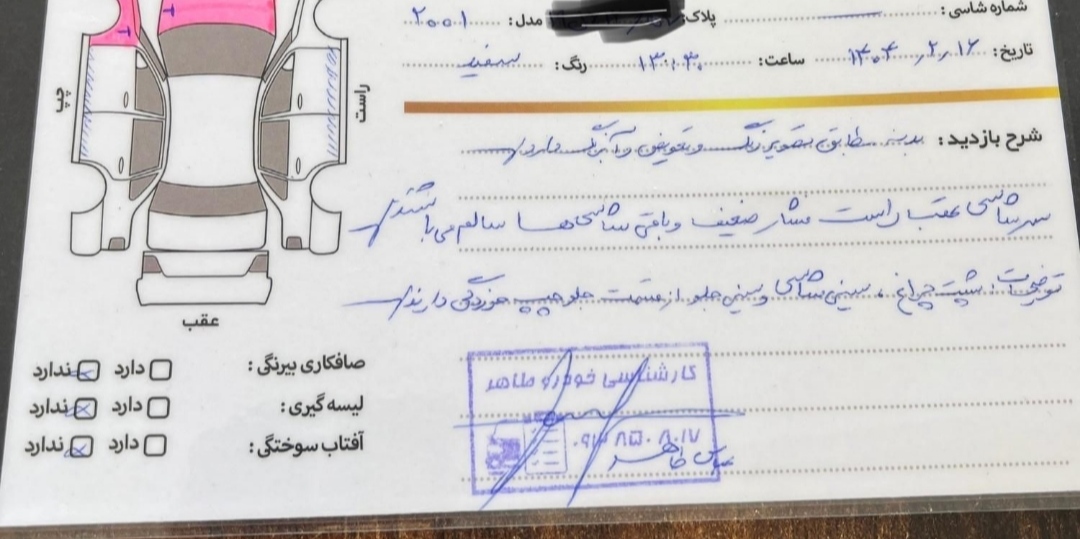 شماره شاسی:
پلاک: مدل: ۲۰۰۱
تاریخ: ۱۴۰۴/۲/۱۶ ساعت: ۱۳:۳۰ رنگ: سفید
شرح بازدید: بدنه طابق تصویر رنگ و تعویض و آبرنگ دارد
سرشاسی عقب راست فشار ضعیف و باقی شاسی‌ها سالم می‌باشند
توضیحات: پشت چراغ، سینی شاسی و سینی جلو از قسمت جلو چپ خوردگی دارند
T
T
چپ
راست
عقب
صافکاری بیرنگی: دارد ندارد
لیسه گیری: دارد ندارد
آفتاب سوختگی: دارد ندارد
کارشناسی خودرو طاهر
عباس طاهر